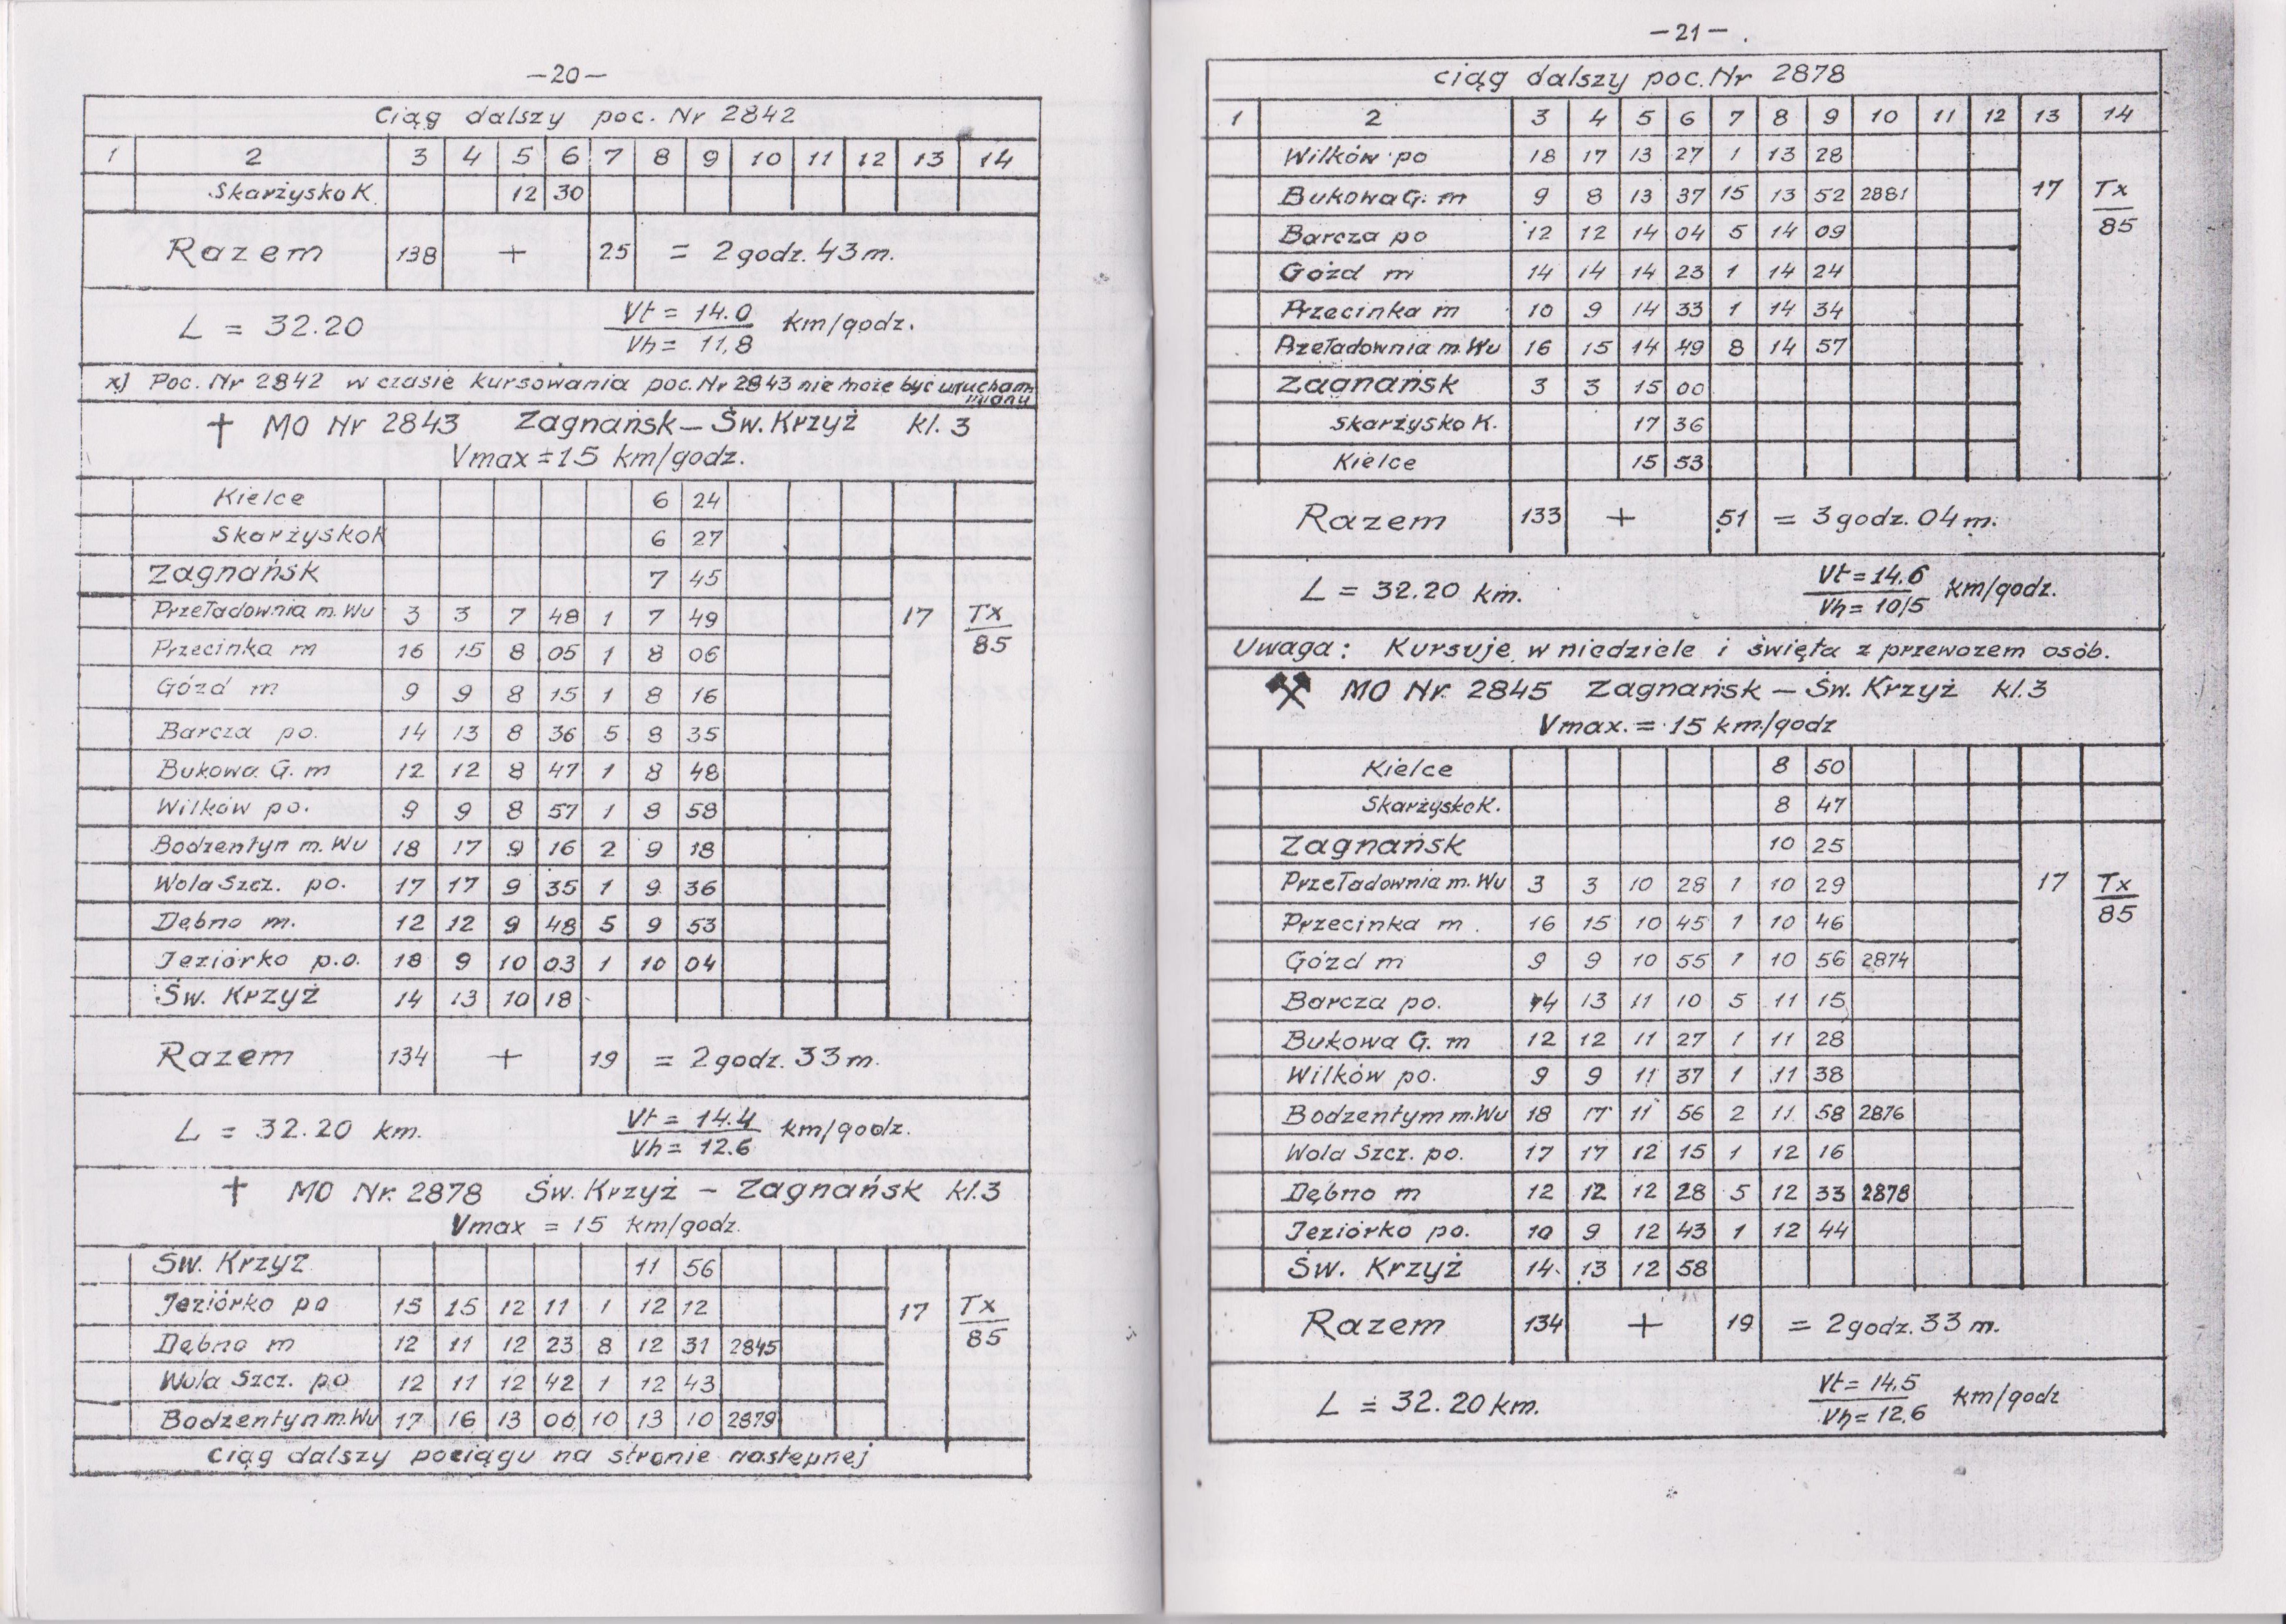 —20—
Ciąg dalszy poc. Nr 2842
1 2 3 4 5 6 7 8 9 10 11 12 13 14
Skarżysko K. 12 30
Razem 138 + 25 = 2 godz. 43 m.
L = 32.20 Vt = 14.0 km/godz.
Vh = 11,8
x) Poc. Nr 2842 w czasie kursowania poc. Nr 2843 nie może być urucham-
miany
† MO Nr 2843 Zagnańsk — Św. Krzyż kl. 3
Vmax = 15 km/godz.
Kielce 6 24
Skarżysko K 6 27
Zagnańsk 7 45
Przeładownia m. Wu 3 3 7 48 1 7 49 17 Tx
Przecinka m 16 15 8 05 1 8 06 85
Gózd m 9 9 8 15 1 8 16
Barcza po. 14 13 8 36 5 8 35
Bukowa G. m 12 12 8 47 1 8 48
Wilków po. 9 9 8 57 1 8 58
Bodzentyn m. Wu 18 17 9 16 2 9 18
Wola Szcz. po. 17 17 9 35 1 9 36
Dębno m. 12 12 9 48 5 9 53
Jeziórko p.o. 18 9 10 03 1 10 04
Św. Krzyż 14 13 10 18
Razem 134 + 19 = 2 godz. 33 m.
L = 32.20 km. Vt = 14.4 km/godz.
Vh = 12.6
† MO Nr. 2878 Św. Krzyż - Zagnańsk kl. 3
Vmax = 15 km/godz.
Św. Krzyż 11 56
Jeziórko po 15 15 12 11 1 12 12 17 Tx
Dębno m 12 11 12 23 8 12 31 2845 85
Wola Szcz. po 12 11 12 42 1 12 43
Bodzentyn m. Wu 17 16 13 00 10 13 10 2879
Ciąg dalszy pociągu na stronie następnej
—21—
ciąg dalszy poc. Nr 2878
1 2 3 4 5 6 7 8 9 10 11 12 13 14
Wilków po 18 17 13 27 1 13 28
Bukowa G. m 9 8 13 37 15 13 52 2881 17 Tx
Barcza po 12 12 14 04 5 14 09 85
Gózd m 14 14 14 23 1 14 24
Przecinka m 10 9 14 33 1 14 34
Przeładownia m. Wu 16 15 14 49 8 14 57
Zagnańsk 3 3 15 00
Skarżysko K. 17 36
Kielce 15 53
Razem 133 + 51 = 3 godz. 04 m.
L = 32.20 km. Vt = 14.6 km/godz.
Vh = 10,5
Uwaga: Kursuje w niedziele i święta z przewozem osób.
⚒ MO Nr. 2845 Zagnańsk — Św. Krzyż kl. 3
Vmax. = 15 km/godz
Kielce 8 50
Skarżysko K. 8 47
Zagnańsk 10 25
Przeładownia m. Wu 3 3 10 28 1 10 29 17 Tx
Przecinka m. 16 15 10 45 1 10 46 85
Gózd m 9 9 10 55 1 10 56 2874
Barcza po. 14 13 11 10 5 11 15
Bukowa G. m 12 12 11 27 1 11 28
Wilków po. 9 9 11 37 1 11 38
Bodzentym m. Wu 18 17 11 56 2 11 58 2876
Wola Szcz. po. 17 17 12 15 1 12 16
Dębno m 12 12 12 28 5 12 33 2878
Jeziórko po. 10 9 12 43 1 12 44
Św. Krzyż 14 13 12 58
Razem 134 + 19 = 2 godz. 33 m.
L = 32.20 km. Vt = 14,5 km/godz
Vh = 12,6